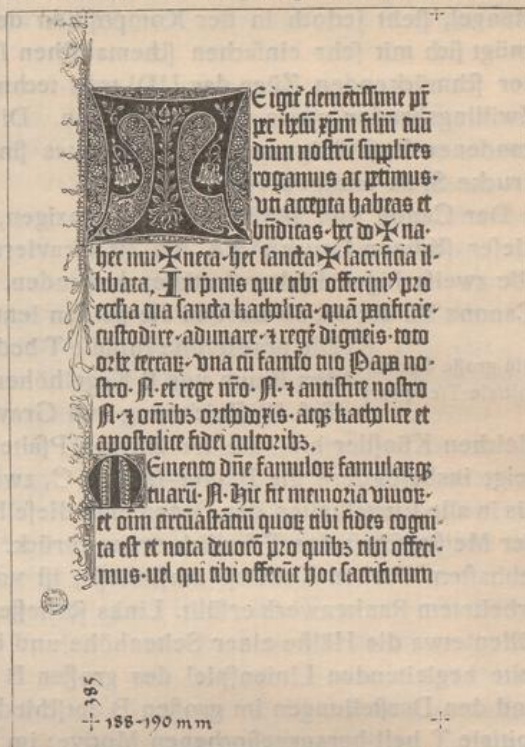 TE igit͛ clemētissime pr̄
per ihesū xp̄m filiū tuū
dn̄m nostrū supplices
rogamus ac petimus·
vti accepta habeas et
bn̄dicas· hec do✠na·
hec mu✠nera· hec sancta✠ sacrificia il-
libata, In p̄mis que tibi offerim⁹ pro
ecclīa tua sancta katholica· quā pacificare
custodire· adunare· ⁊ regē digneris· toto
orbe terraꝝ· vna cū famlo tuo Papa no-
stro· N· et rege nr̄o· N· ⁊ antistite nostro
N· ⁊ om̄ibꝫ orthodoxis· atqꝫ katholice et
apostolice fidei cultoribꝫ.
Memento dn̄e famuloꝝ famularꝝqꝫ
tuarū· N· Hic fit memoria viuoꝝ·
et oīm circūastātiū quoꝝ tibi fides cogni-
ta est et nota deuocō pro quibꝫ tibi offeri-
mus· uel qui tibi offerūt hoc sacrificium
385
188-190 mm